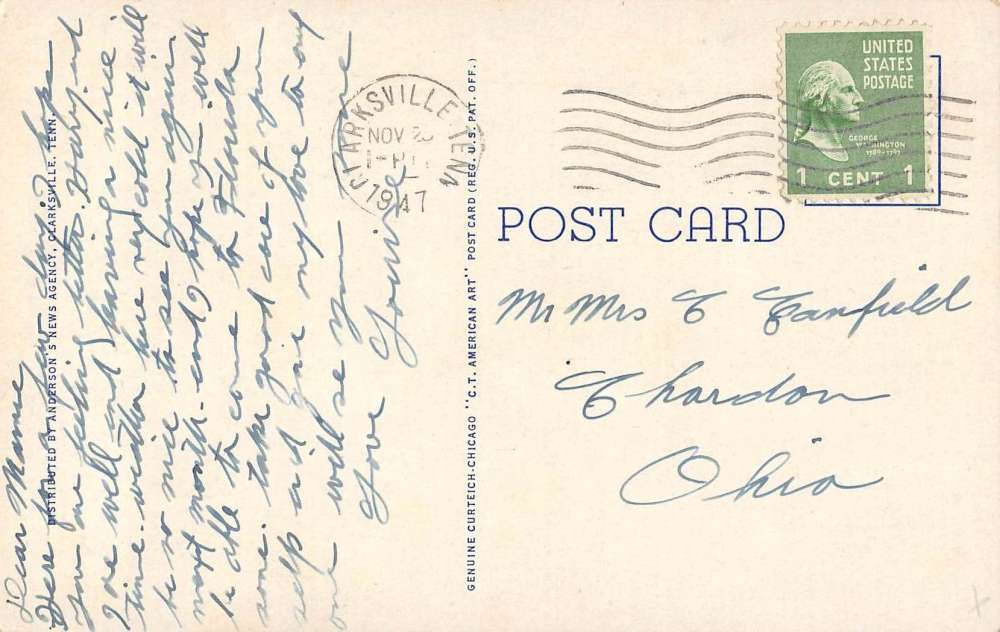 Dear Mamey
Here for a few days. hope
you are feeling better. Harry and
I are well and having a nice
time. weather here very cold it will
be so nice to see you again
next month. and I hope you will
be able to come to Florida
some. take good care of your
self and give my love to any
one will se you
Love Louise
DISTRIBUTED BY ANDERSON'S NEWS AGENCY, CLARKSVILLE, TENN.
CLARKSVILLE TENN
NOV 2
1947
GENUINE CURTEICH-CHICAGO "C.T. AMERICAN ART" POST CARD (REG. U.S. PAT. OFF.)
UNITED
STATES
POSTAGE
GEORGE
WASHINGTON
1789-1797
1 CENT 1
POST CARD
Mr Mrs C Canfield
Chardon
Ohio